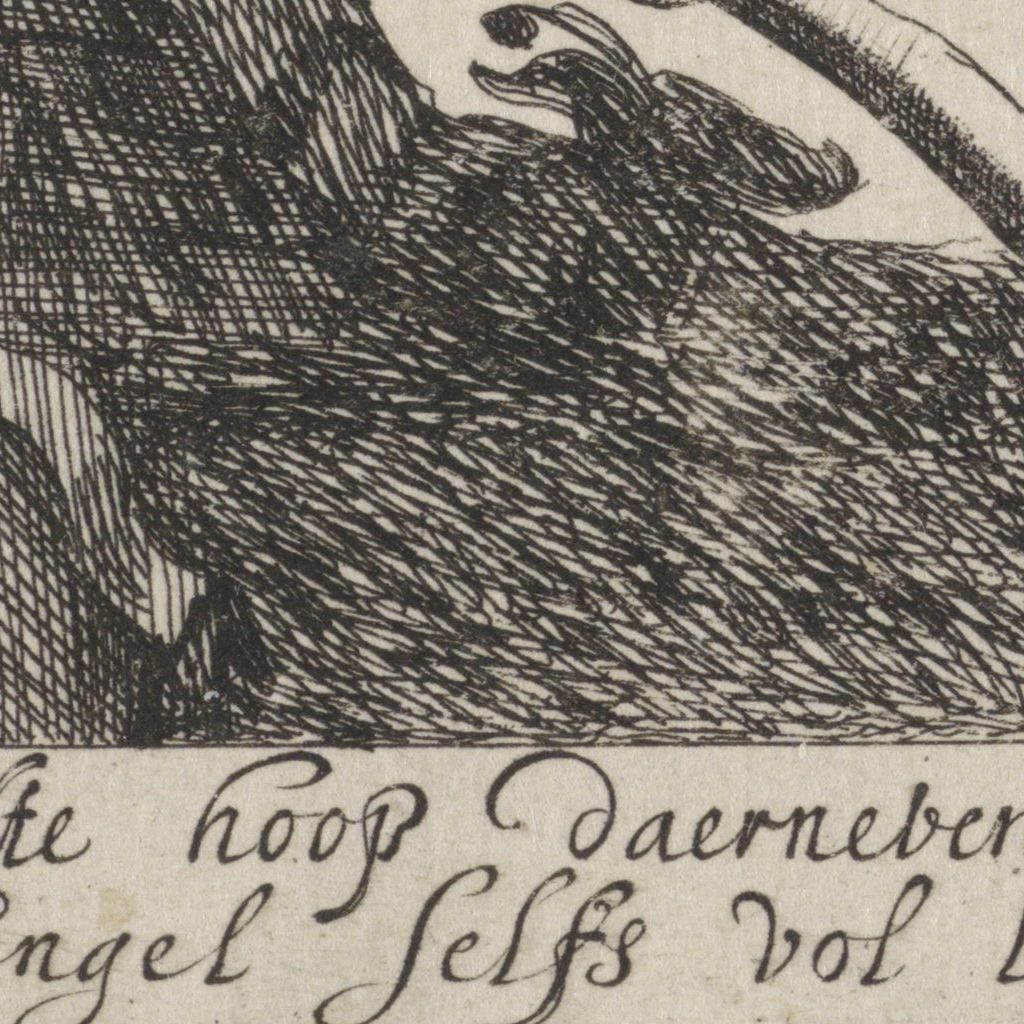 ste hoop daerneben
engel selfs vol